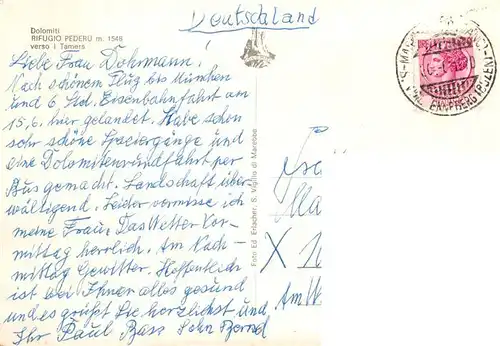 Dolomiti
RIFUGIO PEDERÜ m. 1548
verso i Tamers
Deutschland
Liebe Frau Dohrmann!
Nach schönem Flug bis München
und 6 Std. Eisenbahnfahrt am
15./6. hier gelandet. Habe schon
sehr schöne Spaziergänge und
eine Dolomitenrundfahrt per
Bus gemacht. Landschaft über-
wältigend. Leider vermisse ich
meine Frau. Das Wetter Vor-
mittag herrlich. Am Nach-
mittag Gewitter. Hoffentlich
ist bei Ihnen alles gesund
und es grüßt Sie herzlichst und
Ihr Paul Bass Sohn Bernd
Foto Ed. Erlacher. S. Vigilio di Marebbe
X
Am W